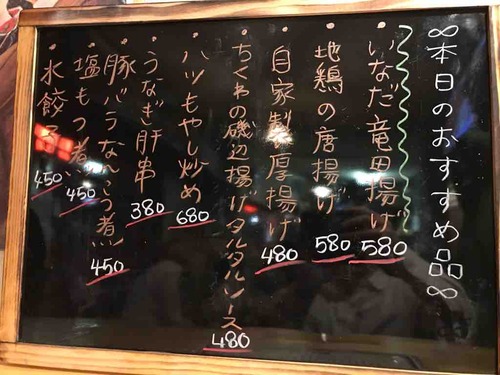 ∞本日のおすすめ品∞
いなだ竜田揚げ 580
地鶏の唐揚げ 580
自家製厚揚げ 480
ちくわの磯辺揚げタルタルソース 480
ハツもやし炒め 680
うなぎ肝串 380
豚バラなんこう煮 450
塩もつ煮 450
水餃子 450